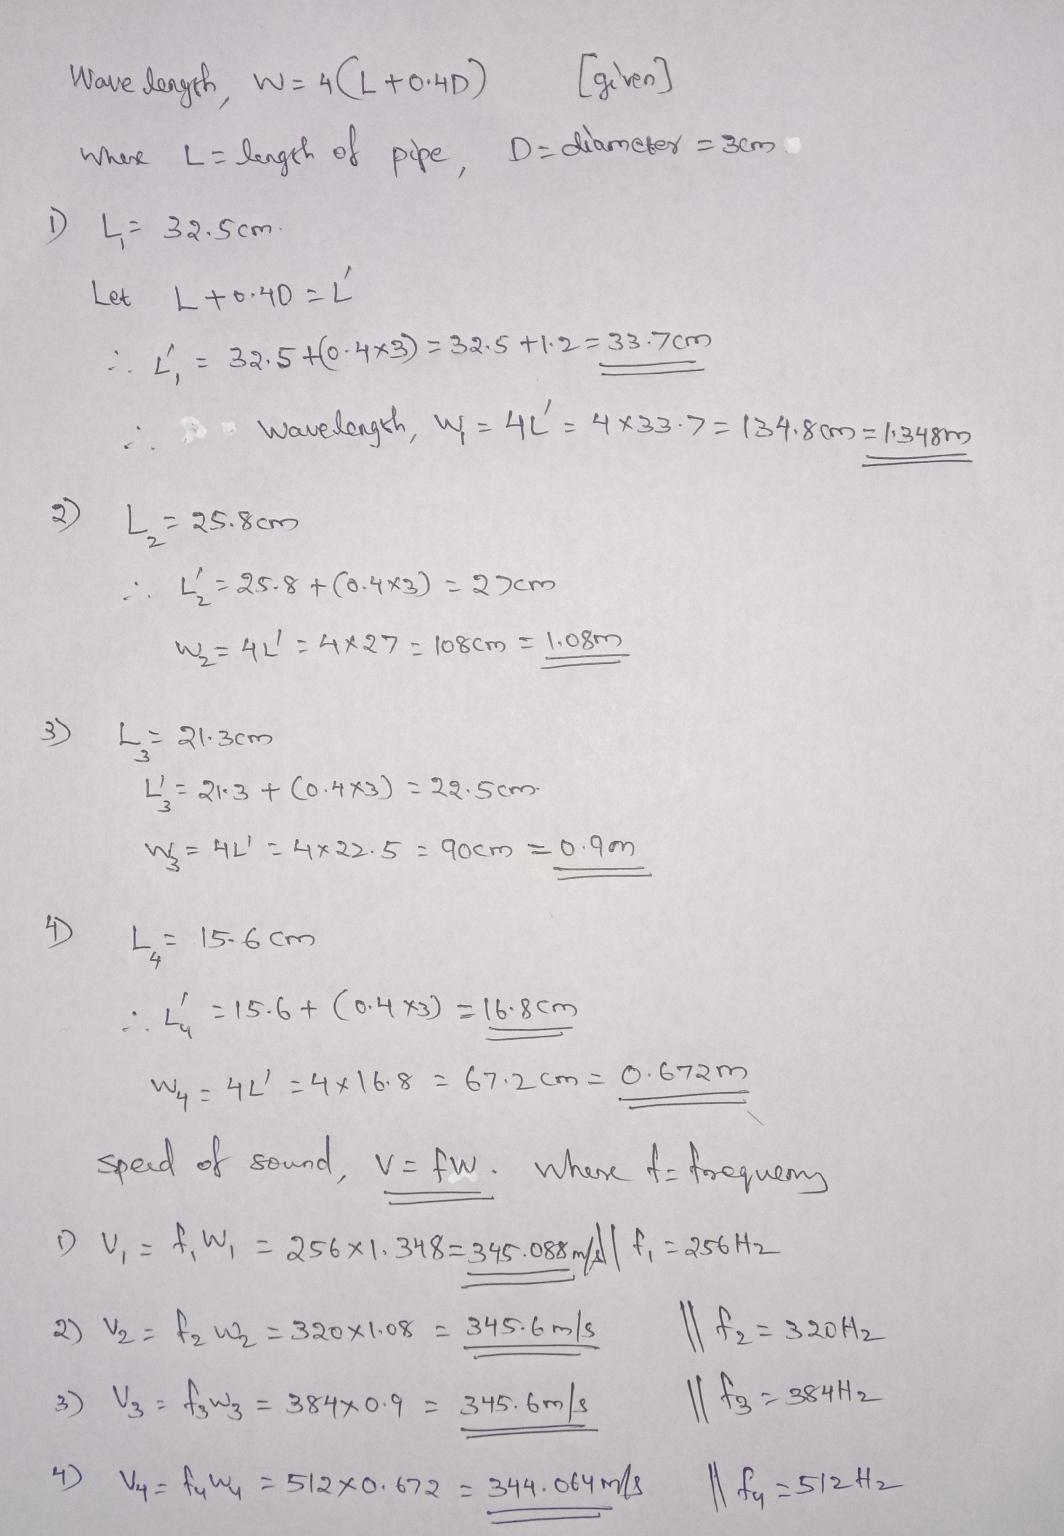 Wave length, W = 4(L + 0.4D) [given]
where L = length of pipe, D = diameter = 3cm
1) L₁ = 32.5cm.
Let L + 0.4D = L'
∴ L'₁ = 32.5 + (0.4×3) = 32.5 + 1.2 = 33.7cm
∴ wavelength, W₁ = 4L' = 4×33.7 = 134.8cm = 1.348m
2) L₂ = 25.8cm
∴ L'₂ = 25.8 + (0.4×3) = 27cm
W₂ = 4L' = 4×27 = 108cm = 1.08m
3) L₃ = 21.3cm
L'₃ = 21.3 + (0.4×3) = 22.5cm.
W₃ = 4L' = 4×22.5 = 90cm = 0.9m
4) L₄ = 15.6cm
∴ L'₄ = 15.6 + (0.4×3) = 16.8cm
W₄ = 4L' = 4×16.8 = 67.2cm = 0.672m
speed of sound, V = fW. where f = frequency
1) V₁ = f₁W₁ = 256×1.348 = 345.088m/s || f₁ = 256Hz
2) V₂ = f₂W₂ = 320×1.08 = 345.6m/s || f₂ = 320Hz
3) V₃ = f₃W₃ = 384×0.9 = 345.6m/s || f₃ = 384Hz
4) V₄ = f₄W₄ = 512×0.672 = 344.064m/s || f₄ = 512Hz